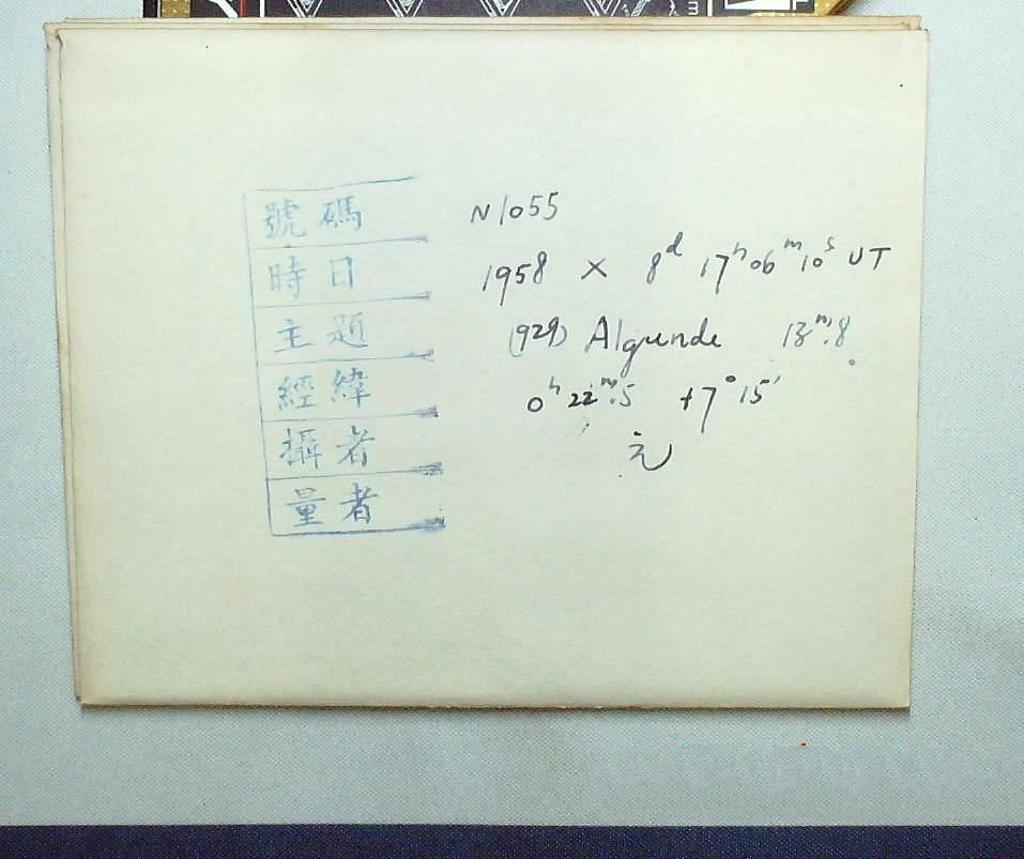 號碼 N1055
時日 1958 X 8ᵈ 17ʰ06ᵐ10ˢ UT
主題 (929) Algunde 13ᵐ.8
經緯 0ʰ22ᵐ.5 +7°15′
攝者 元
量者